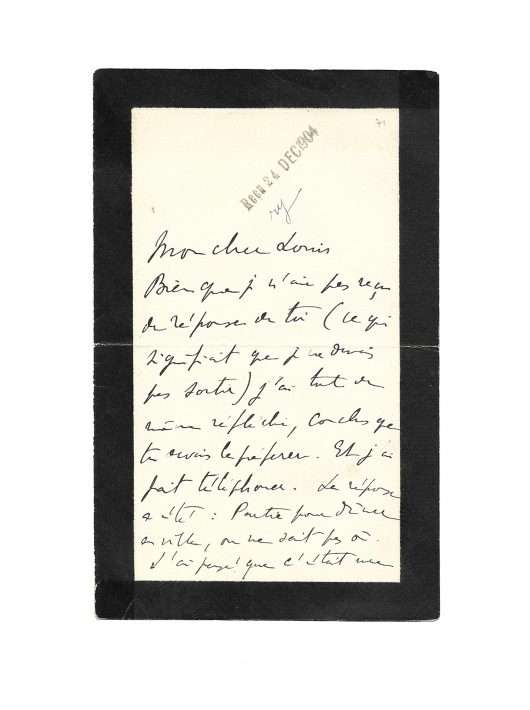 71
Recd 24 DEC 1904
ry
Mon cher Louis
Bien que je n'aie pas reçu
de réponse de toi (ce qui
signifiait que je ne devais
pas sortir) j'ai tout de
même réfléchi, conclus que
tu avais le préférer. Et j'ai
fait téléphoner. La réponse
a été : Partie pour dîner
en ville, on ne sait pas où.
J'ai pensé que c'était une